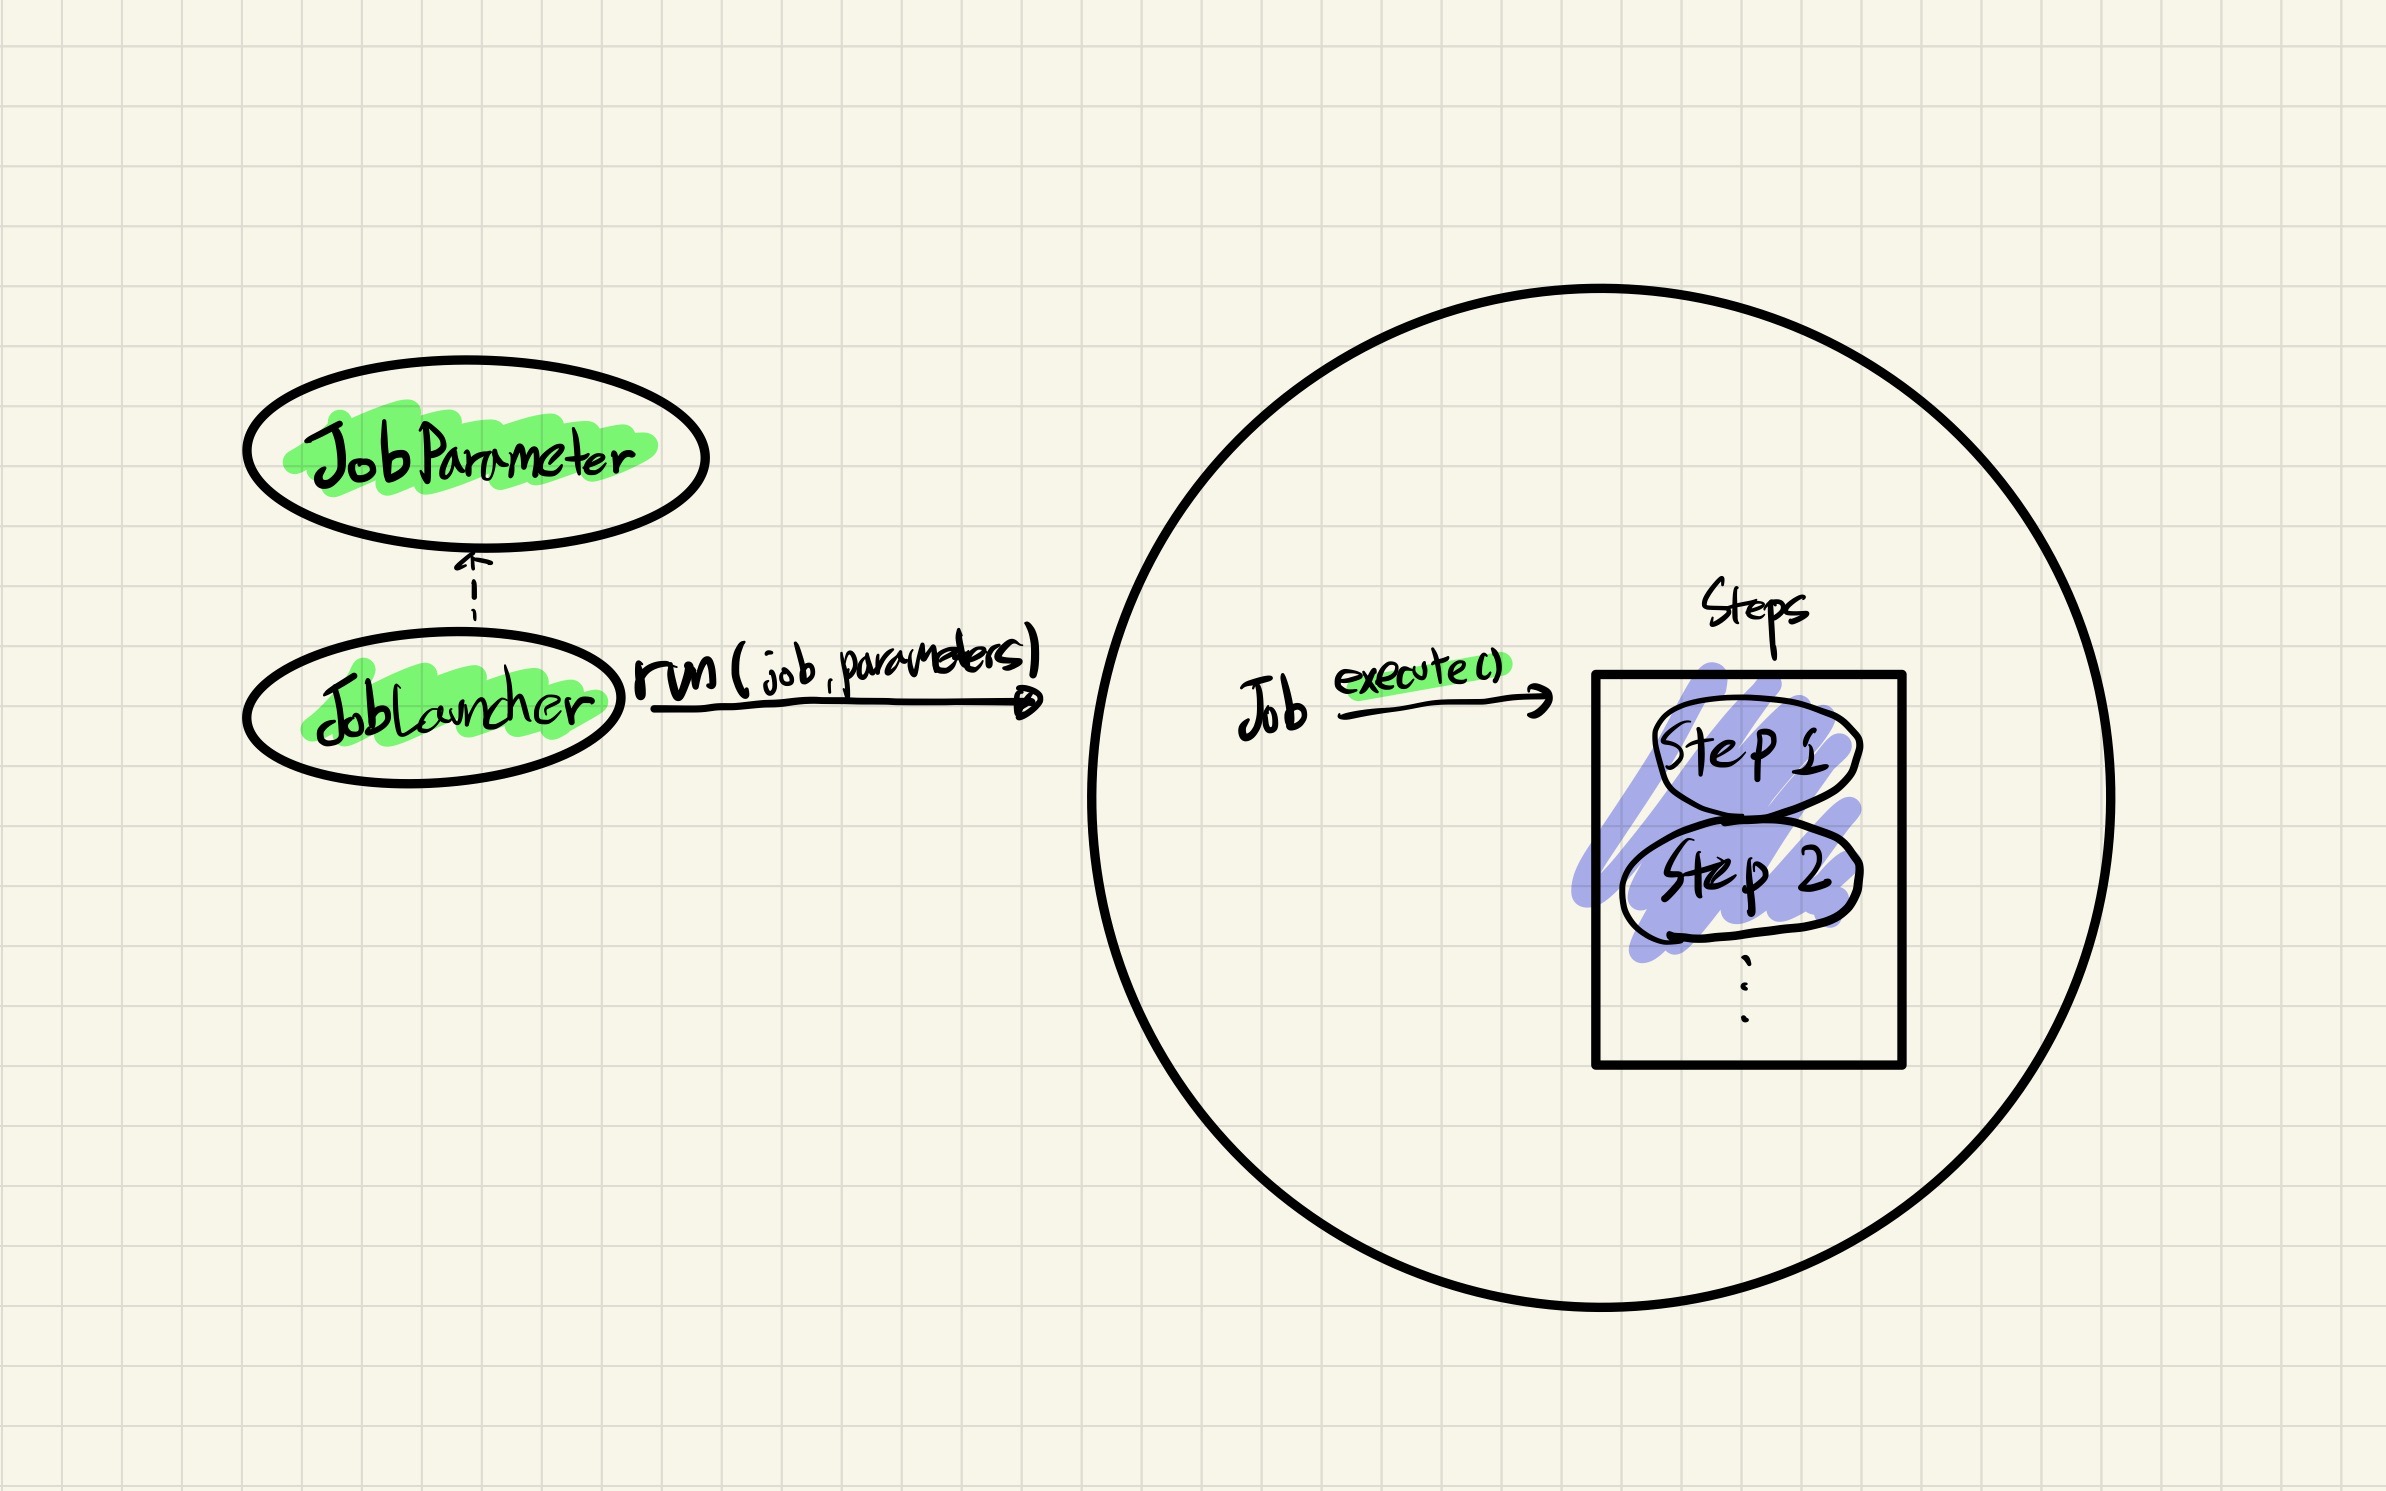 JobParameter
JobLauncher
run(job, parameters)
Job
execute()
Steps
Step 1
Step 2